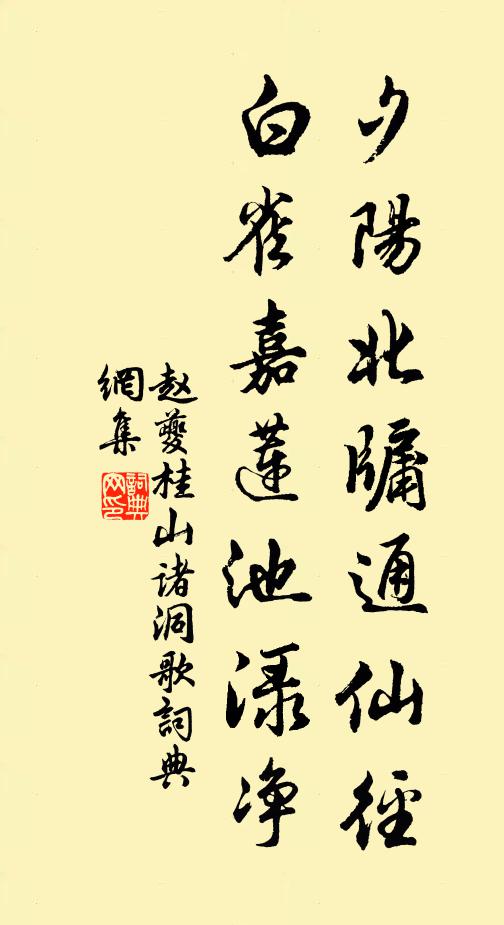 夕陽北牖通仙徑
白雀嘉蓮池淥净
赵夔桂山诸洞歌詞典
網集
詞典
网印